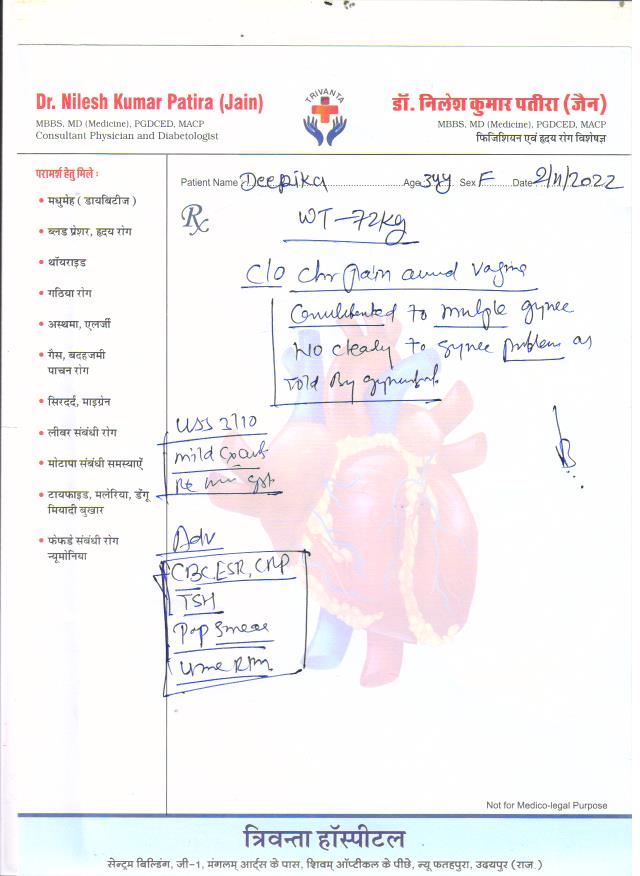 Dr. Nilesh Kumar Patira (Jain)
MBBS, MD (Medicine), PGDCED, MACP
Consultant Physician and Diabetologist
TRIVANTA
डॉ. निलेश कुमार पतीरा (जैन)
MBBS, MD (Medicine), PGDCED, MACP
फिजिशियन एवं हृदय रोग विशेषज्ञ
परामर्श हेतु मिले :
• मधुमेह ( डायबिटीज )
• ब्लड प्रेशर, हृदय रोग
• थॉयराइड
• गठिया रोग
• अस्थमा, एलर्जी
• गैस, बदहजमी
पाचन रोग
• सिरदर्द, माइग्रेन
• लीवर संबंधी रोग
• मोटापा संबंधी समस्याऐं
• टायफाइड, मलेरिया, डेंगू
मियादी बुखार
• फेफडे संबंधी रोग
न्यूमोनिया
Patient Name Deepika Age 34y Sex F Date 2/11/2022
Rx
WT - 72kg
C/O Chr pain around vagina
to multiple gynec
No to gynec problem as
told By
USS 2/10
mild
Rt
Adv
CBC, ESR, CRP
TSH
Pap Smear
Urine R/M
Not for Medico-legal Purpose
त्रिवन्ता हॉस्पीटल
सेन्ट्रम बिल्डिंग, जी-1, मंगलम् आर्ट्स के पास, शिवम् ऑप्टीकल के पीछे, न्यू फतहपुरा, उदयपुर (राज.)